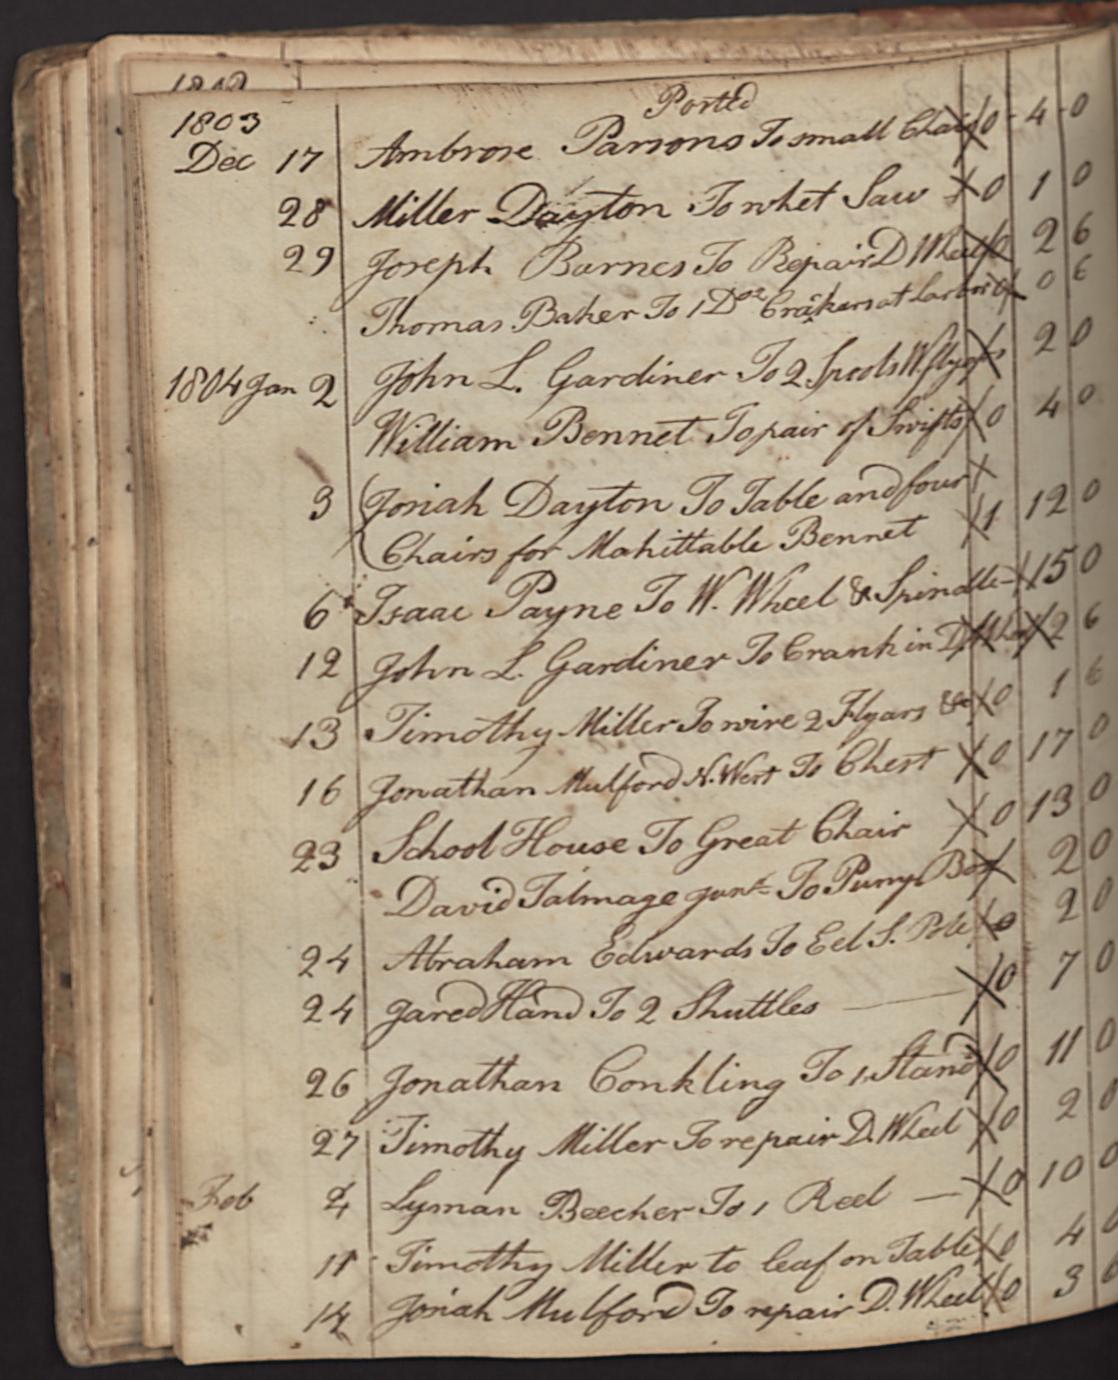 1803
Ported
Dec 17 Ambrose Parsons To small Chair X 0 - 4 - 0
28 Miller Dayton To whet Saw X 0 1 0
29 Joseph Barnes To Repair D Wheel X 0 2 6
Thomas Baker To 1 Doz Crákers at 0 6
1804 Jan 2 John L. Gardiner To 2 Spools W. flyers X 2 0
William Bennet To pair of Swifts X 0 4 0
3 (Josiah Dayton To Table and four X
Chairs for Mahittable Bennet X 1 12 0
6 Isaac Payne To W. Wheel & Spindle X 15 0
12 John L. Gardiner To Crank in D. Wheel X 2 6
13 Timothy Miller To wire 2 Flyars &c X 0 1 6
16 Jonathan Mulford N. West To Chest X 0 17 0
23 School House To Great Chair X 0 13 0
David Talmage junr To Pump Box X 2 0
24 Abraham Edwards To Eel S. Pole X 0 2 0
24 Jared Hand To 2 Shuttles — X 0 7 0
26 Jonathan Conkling To 1 Stand X 0 11 0
27 Timothy Miller To repair D. Wheel X 0 2 0
Feb 4 Lyman Beecher To 1 Reel — X 0 10 0
11 Timothy Miller to leaf on Table X 0 4 0
14 Josiah Mulford To repair D. Wheel X 0 3 0